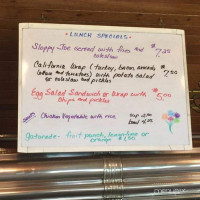 • LUNCH SPECIALS •
Sloppy Joe served with fries and
coleslaw
$7.25
California Wrap (turkey, bacon, avocado,
lettuce and tomatoes) with potato salad
or coleslaw and pickles
$7.50
Egg Salad Sandwich or Wrap with
chips and pickles
$5.00
Chicken Vegetable with rice
cup
bowl
Gatorade - fruit punch, lemon-lime or
orange